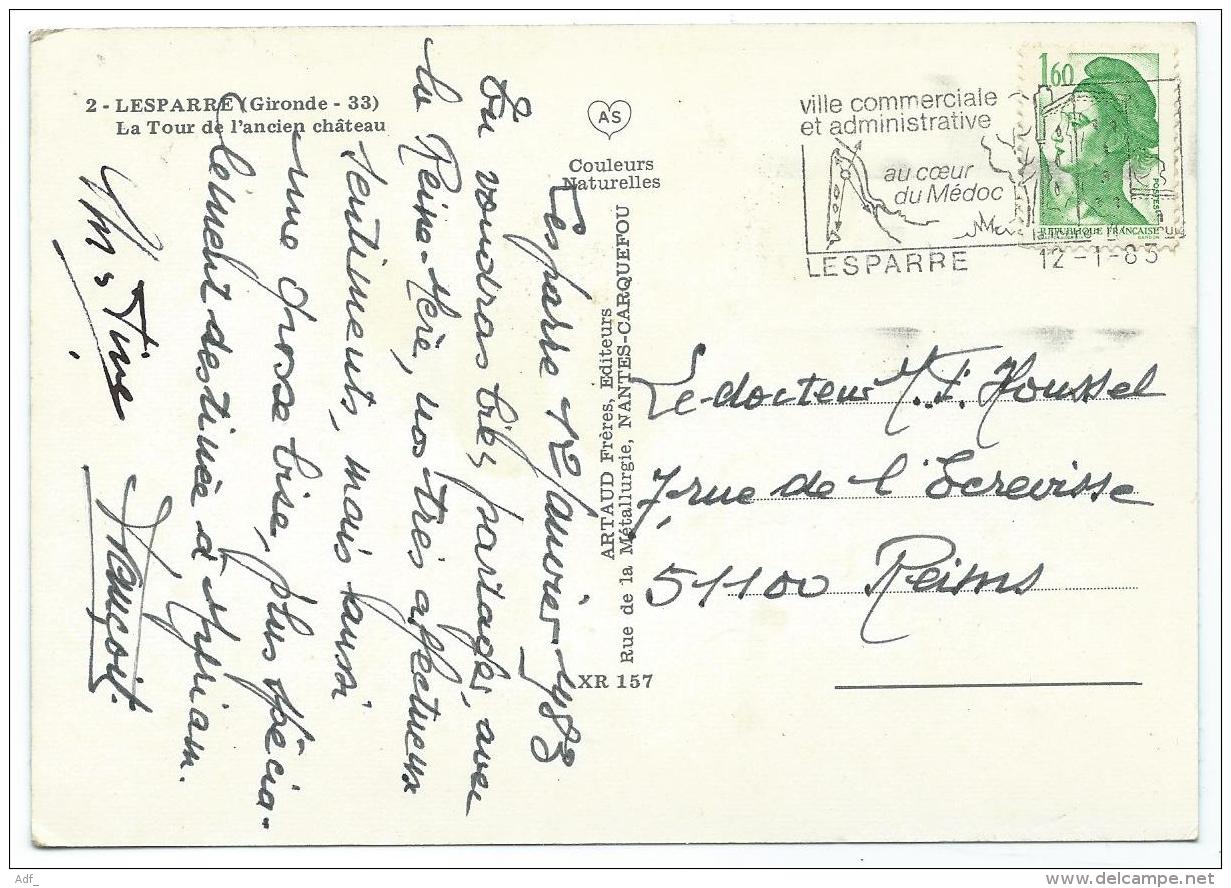 2 - LESPARRE (Gironde - 33)
La Tour de l'ancien château
AS
Couleurs
Naturelles
ville commerciale
et administrative
au cœur
du Médoc
LESPARRE
12-1-83
1,60
POSTES
REPUBLIQUE FRANCAISE
GANDON
Lesparre 12 Janvier 1983
Tu voudras bien partager, avec
la Reine-Mère, nos très affectueux
sentiments, mais aussi
une grosse bise, plus spécia-
lement destinée à
François.
ARTAUD Frères, Editeurs
Rue de la Métallurgie, NANTES-CARQUEFOU
AXR 157
Le docteur M. F. Houssel
7, rue de l'Ecrevisse
51100 Reims
Adf_
www.delcampe.net